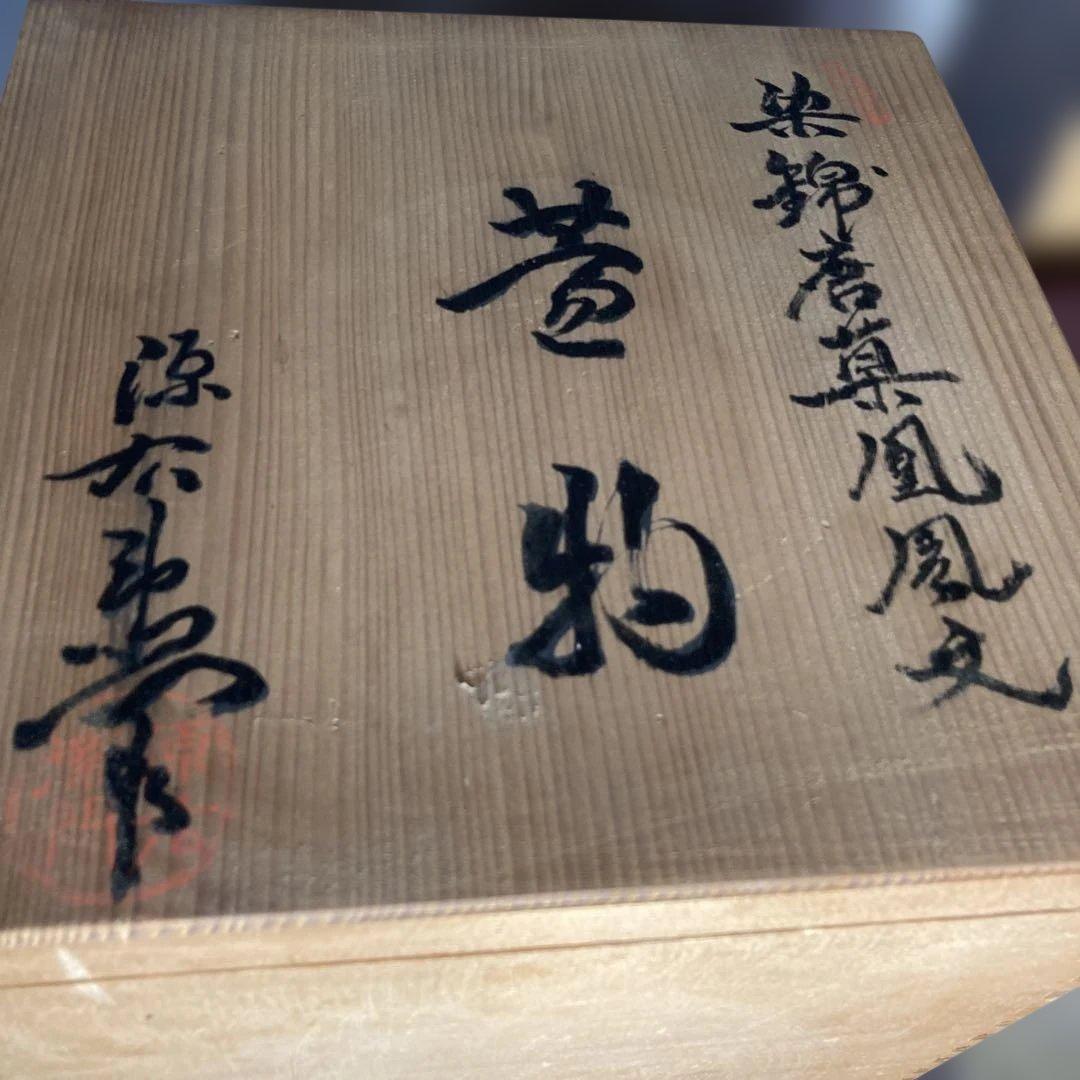 染錦唐草鳳凰文
蓋物
源右衛門